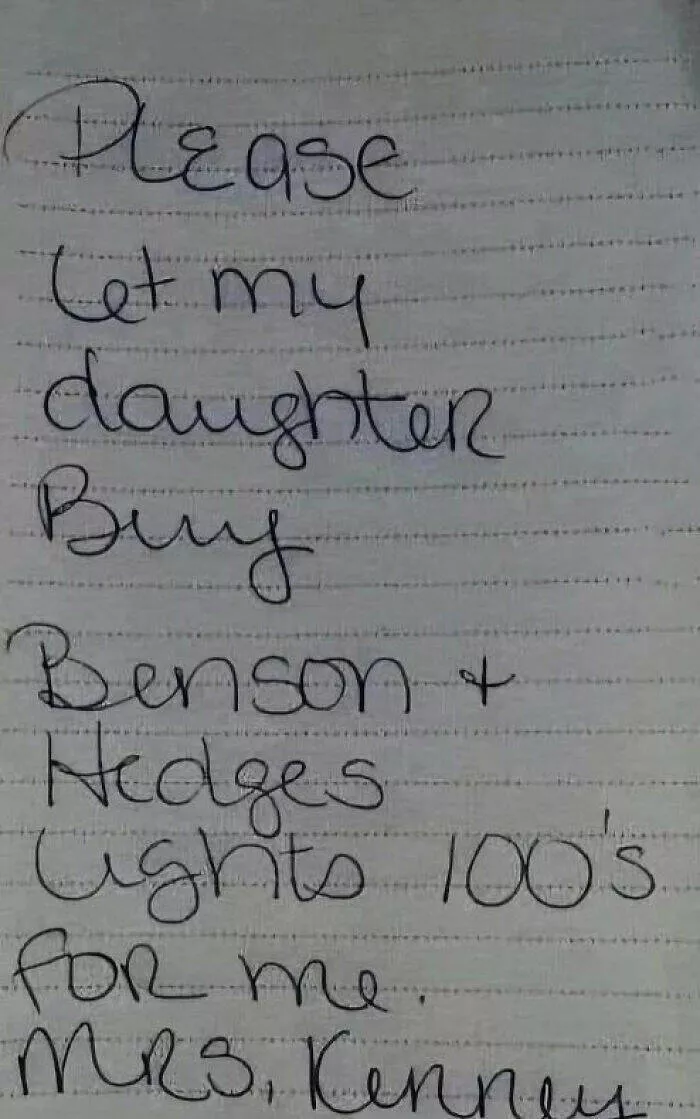 Please
let my
daughter
Buy
Benson +
Hedges
Lights 100's
for me.
Mrs. Kenney